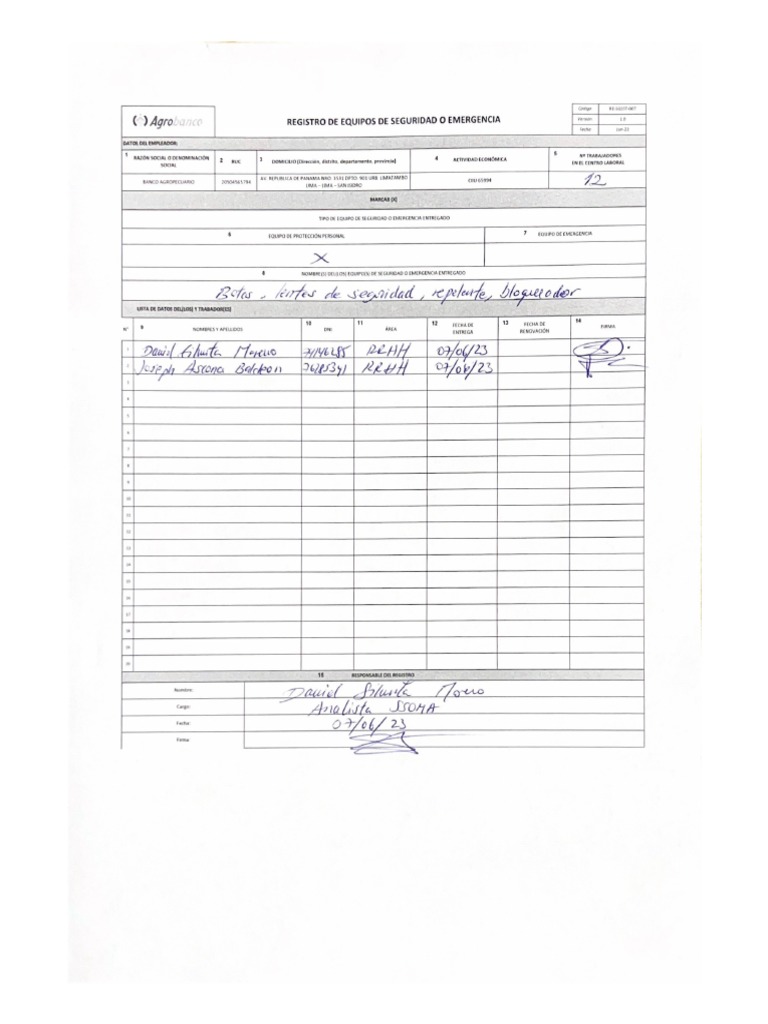 Agrobanco
REGISTRO DE EQUIPOS DE SEGURIDAD O EMERGENCIA
Código
Versión 1.0
Fecha Jun-23
DATOS DEL EMPLEADOR:
1 RAZÓN SOCIAL O DENOMINACIÓN SOCIAL
2 RUC
3 DOMICILIO (Dirección, distrito, departamento, provincia)
4 ACTIVIDAD ECONÓMICA
5 Nº TRABAJADORES EN EL CENTRO LABORAL
BANCO AGROPECUARIO
AV. REPUBLICA DE PANAMA NRO. 3531 DPTO. 901 URB. LIMATAMBO
LIMA – LIMA – SAN ISIDRO
CIIU 65994
12
MARCAR (X)
TIPO DE EQUIPO DE SEGURIDAD O EMERGENCIA ENTREGADO
6 EQUIPO DE PROTECCIÓN PERSONAL
7 EQUIPO DE EMERGENCIA
X
8 NOMBRE(S) DEL(LOS) EQUIPO(S) DE SEGURIDAD O EMERGENCIA ENTREGADO
Botas, lentes de seguridad, repelente, bloqueador
LISTA DE DATOS DEL(LOS) Y TRABADOR(ES)
N° 9 NOMBRES Y APELLIDOS
10 DNI
11 ÁREA
12 FECHA DE ENTREGA
13 FECHA DE RENOVACIÓN
14 FIRMA
1 Daniel Moreno 71146285 RRHH 07/06/23
2 Joseph Ascona 76185341 RRHH 07/06/23
3
4
5
6
7
8
9
10
11
12
13
14
15
16
17
18
19
20
15 RESPONSABLE DEL REGISTRO
Nombre: Daniel Moreno
Cargo: Analista SSOMA
Fecha: 07/06/23
Firma